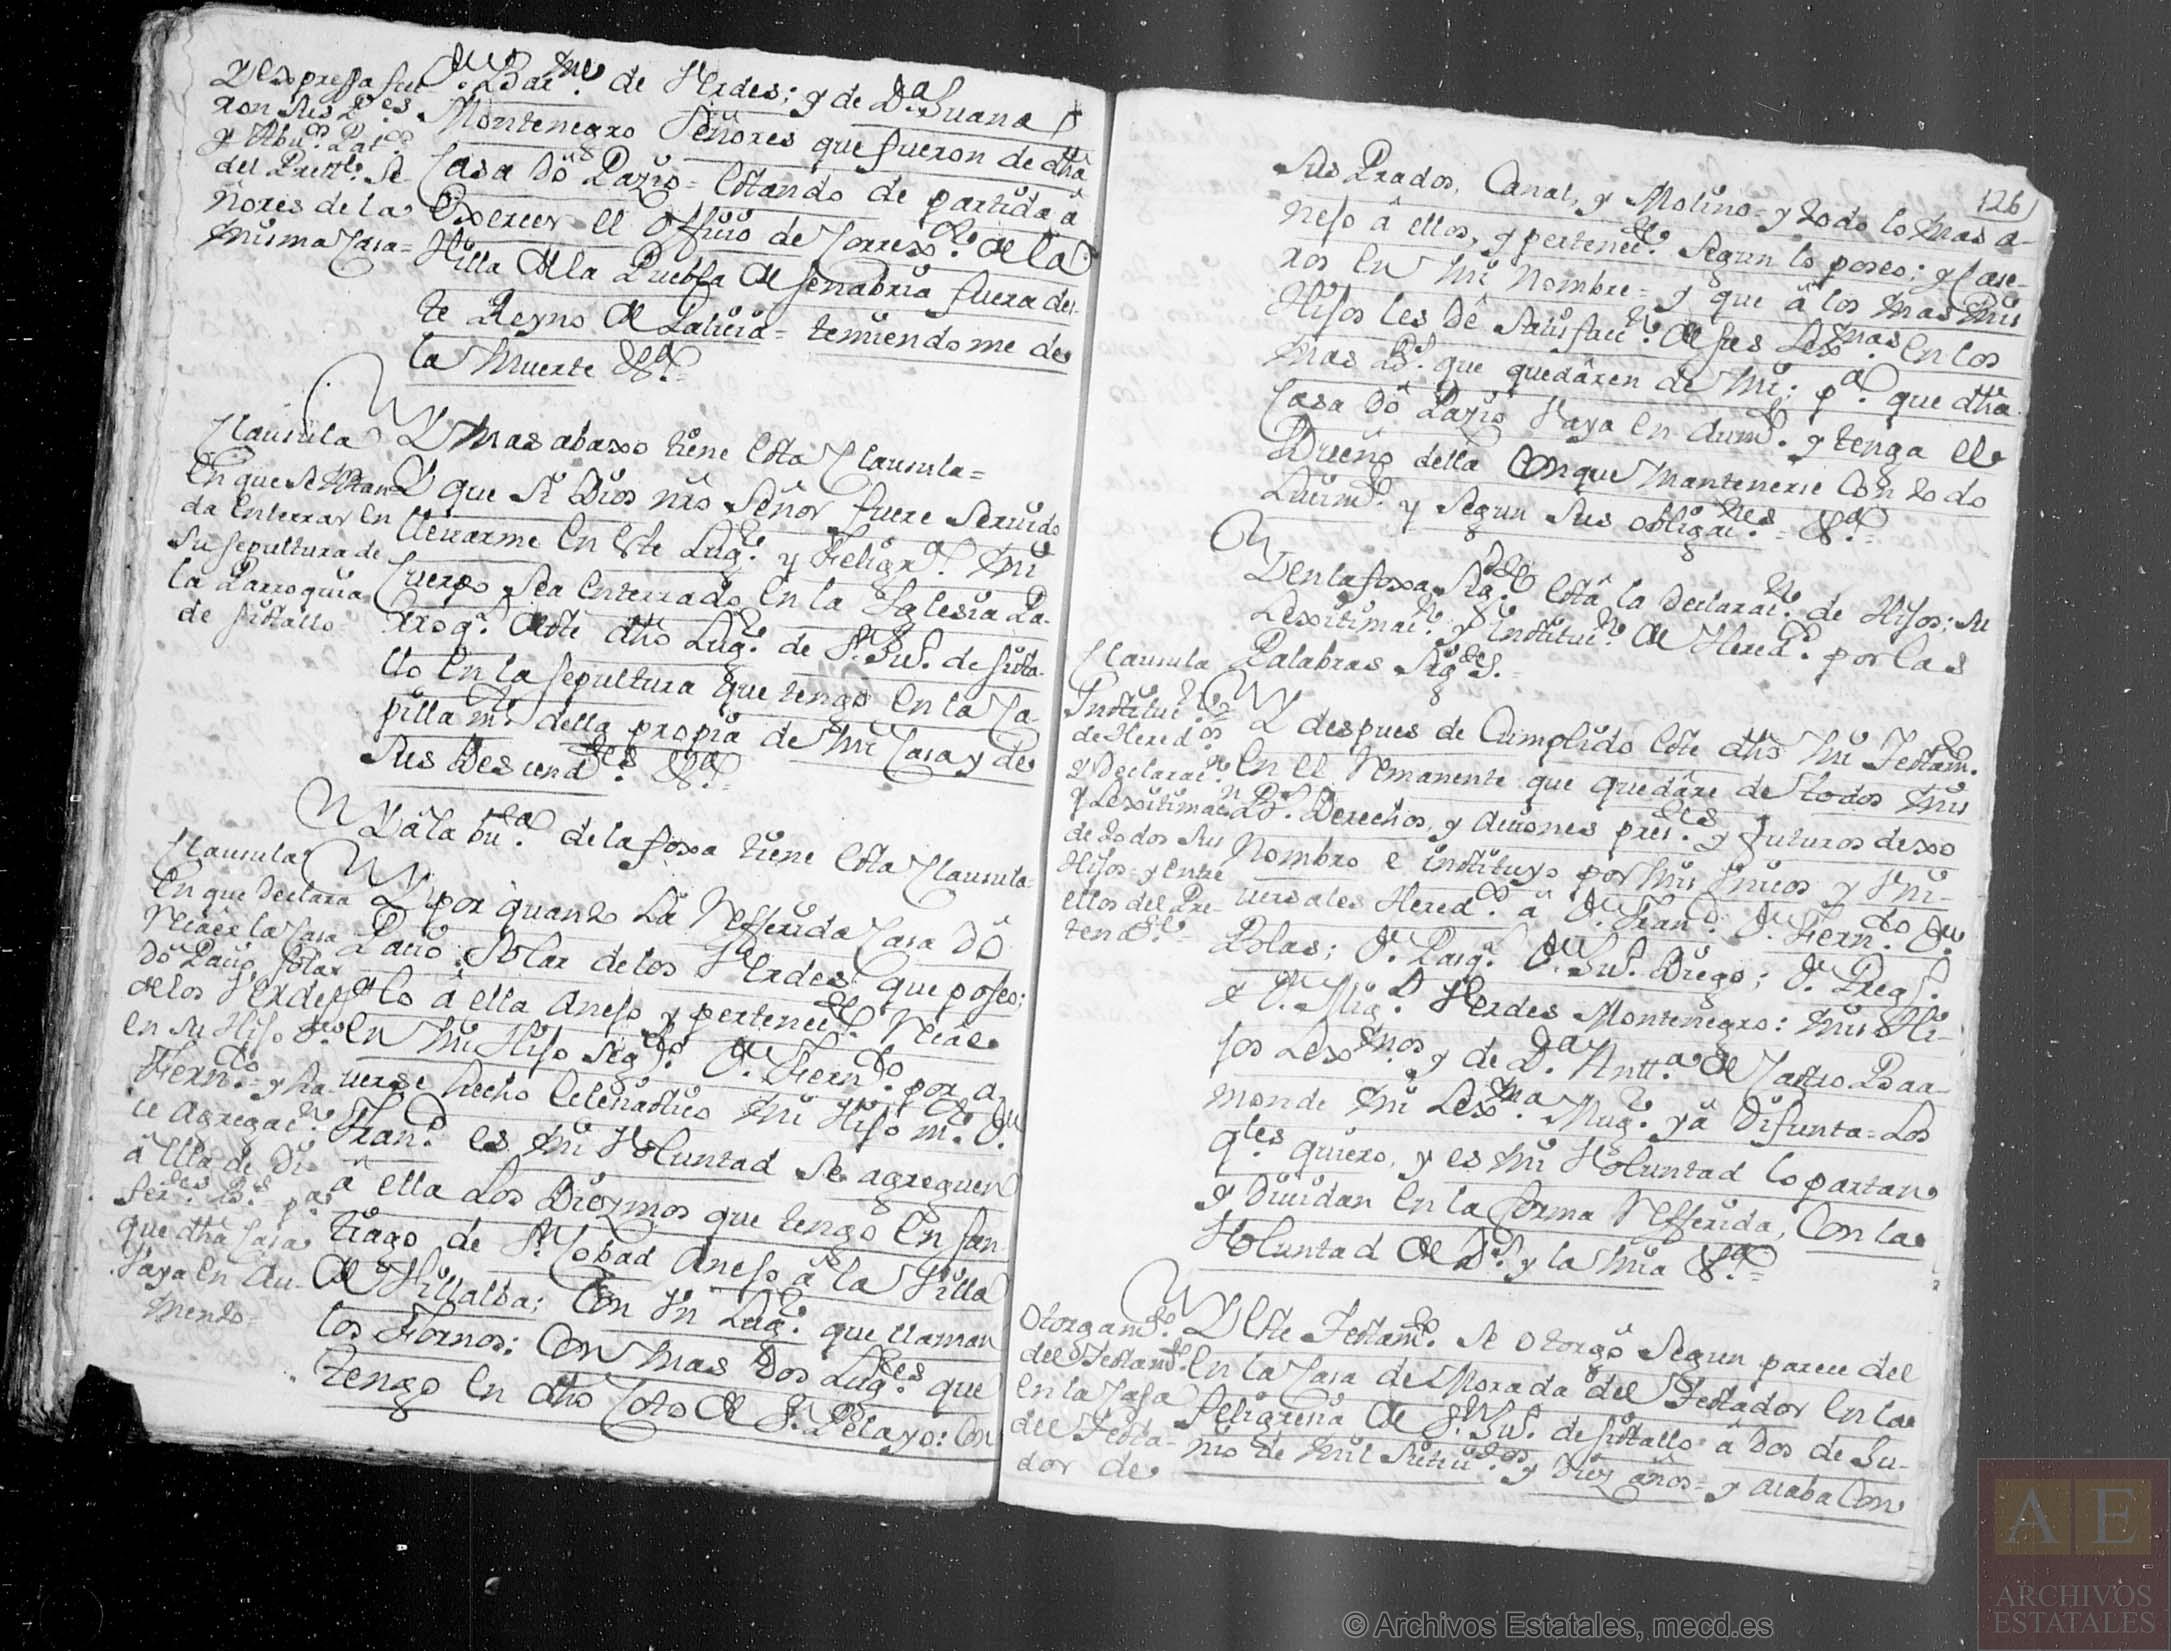 Y Expressa fue-
ron sus P.es
y Abu.os Pat.os
del Prett.te Se-
ñores de la
misma Casa=
D.n Bar.me de Verdes; y de D.a Juana
Montenegro Señores que fueron de dha
Casa dô Pazio= Estando de partida â
Exercer el Officio de Correx.or de la
Villa de la Puebla de Senabria fuera des-
te Reyno de Galicia= temiendome de
la Muerte &.a=
Y mas abaxo tiene esta Clausula=
Clausula
en que se Man-
da enterrar en
su sepultura de
la Parroquia
de sistallo
Y que si Dios nrô Señor fuere Seruido
lleuarme en este Lug.r y Feligr.a mi
Cuerpo sea enterrado en la Iglesia Pa-
rroq.l deste dho Lug.r de S.n Ju.o de sista-
llo en la sepultura que tengo en la Ca-
pilla m.r della propia de mi Casa y de
sus Descend.tes &.a=
Y â la bu.ta de la foxa tiene esta Clausula=
Clausula
en que declara
Recâer la Casa
dô Pacio, solar
de los Verdes
en su Hijo D.n
Fern.do= y ha-
ce agregac.n
â ella de di-
fer.tes B.s p.a
que dha Casa
Vaya en Au-
mento=
Y por quanto La Refferida Casa dô
Pacio: Solar de los Verdes que poseo;
y lo â ella Anejo y pertenec.te Recâe
en mi Hijo seg.do D.n Fern.do por a-
uerse hecho Eclesiastico mi Hijo m.r D.n
Fran.co es mi Voluntad se agreguen
â ella Los Diezmos que tengo en san-
tiago de S.n Cobad Anejo â la Villa
de Villalba; Con Vn Lug.r que llaman
los Fornos: Con mas dos Lug.es que
tengo en dho Coto de S. Pelayo: Con
126
sus Prados, Canal, y Molino= y todo lo mas a-
nejo â ellos, y pertenec.te Segun lo poseo; y Case-
ros en mi Nombre= y que â los mas mis
Hijos les dê satisfacc.n de sus Lex.mas en los
mas B.s que quedâren de mi; p.a que dha
Casa dô Pazio Vaya en Aum.to y tenga el
Dueño della Con que mantenerse Con todo
Lucim.to y segun sus obligac.nes= &.a=
Y en la foxa sig.te estâ la declarac.n de Hijos; su
Lexitimac.n y institui.n de Hered.s por las
Palabras sig.tes=
Clausula
Institui.n
de Hered.os
y Declarac.n
y Lexitimac.n
de todos sus
Hijos= y entre
ellos del Pre-
tend.te=
Y despues de Cumplido este dho mi Testam.to
en el Remanente que quedâre de todos mis
B.s Derechos, y Acciones pres.tes y futuros dexo
Nombro e instituyo por mis Vnicos y Vni-
uersales Hered.s â D.n Fran.co D.n Fern.do D.n
Blas; D.n Pasq.l D.n Ju.o Diego; D.n Preg.
y D.n Mig.l Verdes Montenegro: mis Hi-
jos Lex.mos y de D.a Antt.a de Castro Baa-
monde mi Lex.ma Mug.r yâ Difunta= Los
q.les quiero, y es mi Voluntad lo partan
y Diuidan en la forma Refferida, Con la
Voluntad de D.s y la mia &.a=
Otorgam.to
del Testam.to
en la Casa
del Testa-
dor de
Y Este Testam.to se otorgô segun parece del
en la Casa de Morada del Testador en la
feligresia de S.n Ju.o de sistallo â dos de Ju-
nio de mil setec.tos y Diez años= y acaba Con
© Archivos Estatales, mecd.es
AE
ARCHIVOS
ESTATALES